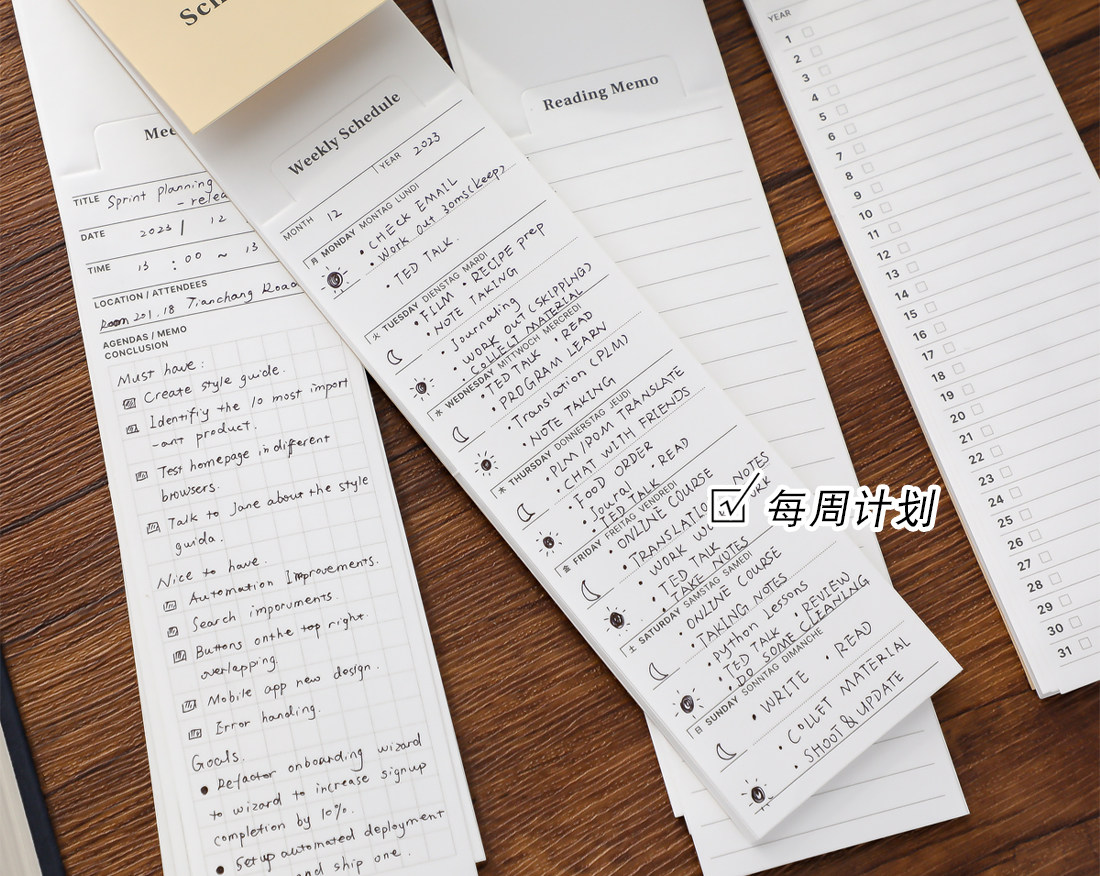 Mee
TITLE Sprint planning
- relea
DATE 2023 / 12
TIME 13 : 00 ~ 13
LOCATION / ATTENDEES
Room 201. 18 Tianchang Road
AGENDAS / MEMO
CONCLUSION
Must have:
Create style guide.
Identifiy the 10 most import
-ant product.
Test homepage in different
browsers.
Talk to Jane about the style
guida.
Nice to have:
Automation Improvements.
Search imporuments.
Buttons on the top right.
overlapping.
Mobile app new design.
Error handing.
Goals.
• Refactor onboarding wizard
to wizard to increase signup
completion by 10%.
• Setup automated deployment
and ship one.
Weekly Schedule
MONTH 12 YEAR 2023
月 MONDAY MONTAG LUNDI
• CHECK EMAIL
• Work out 30ms (keep)
• TED TALK.
火 TUESDAY DIENSTAG MARDI
• FILM • RECIPE prep
• NOTE TAKING
• Journaling
• WORK OUT (SKIPPING)
• COLLECT MATERIAL
水 WEDNESDAY MITTWOCH MERCREDI
• TED TALK • READ
• PROGRAM LEARN
• Translation (PLM)
• NOTE TAKING
木 THURSDAY DONNERSTAG JEUDI
• PLM/POM TRANSLATE
• CHAT WITH FRIENDS
• FOOD ORDER
• Joural • READ
• TED TALK
金 FRIDAY FREITAG VENDREDI
• ONLINE COURSE
• TRANSLATION NOTES
• WORK
• TED TALK
• TAKE NOTES
土 SATURDAY SAMSTAG SAMEDI
• ONLINE COURSE
• TAKING NOTES
• Python Lessons
• TED TALK • REVIEW
• DO SOME CLEANING
日 SUNDAY SONNTAG DIMANCHE
• WRITE • READ
• COLLET MATERIAL
• SHOOT & UPDATE
Reading Memo
每周计划
YEAR
1
2
3
4
5
6
7
8
9
10
11
12
13
14
15
16
17
18
19
20
21
22
23
24
25
26
27
28
29
30
31